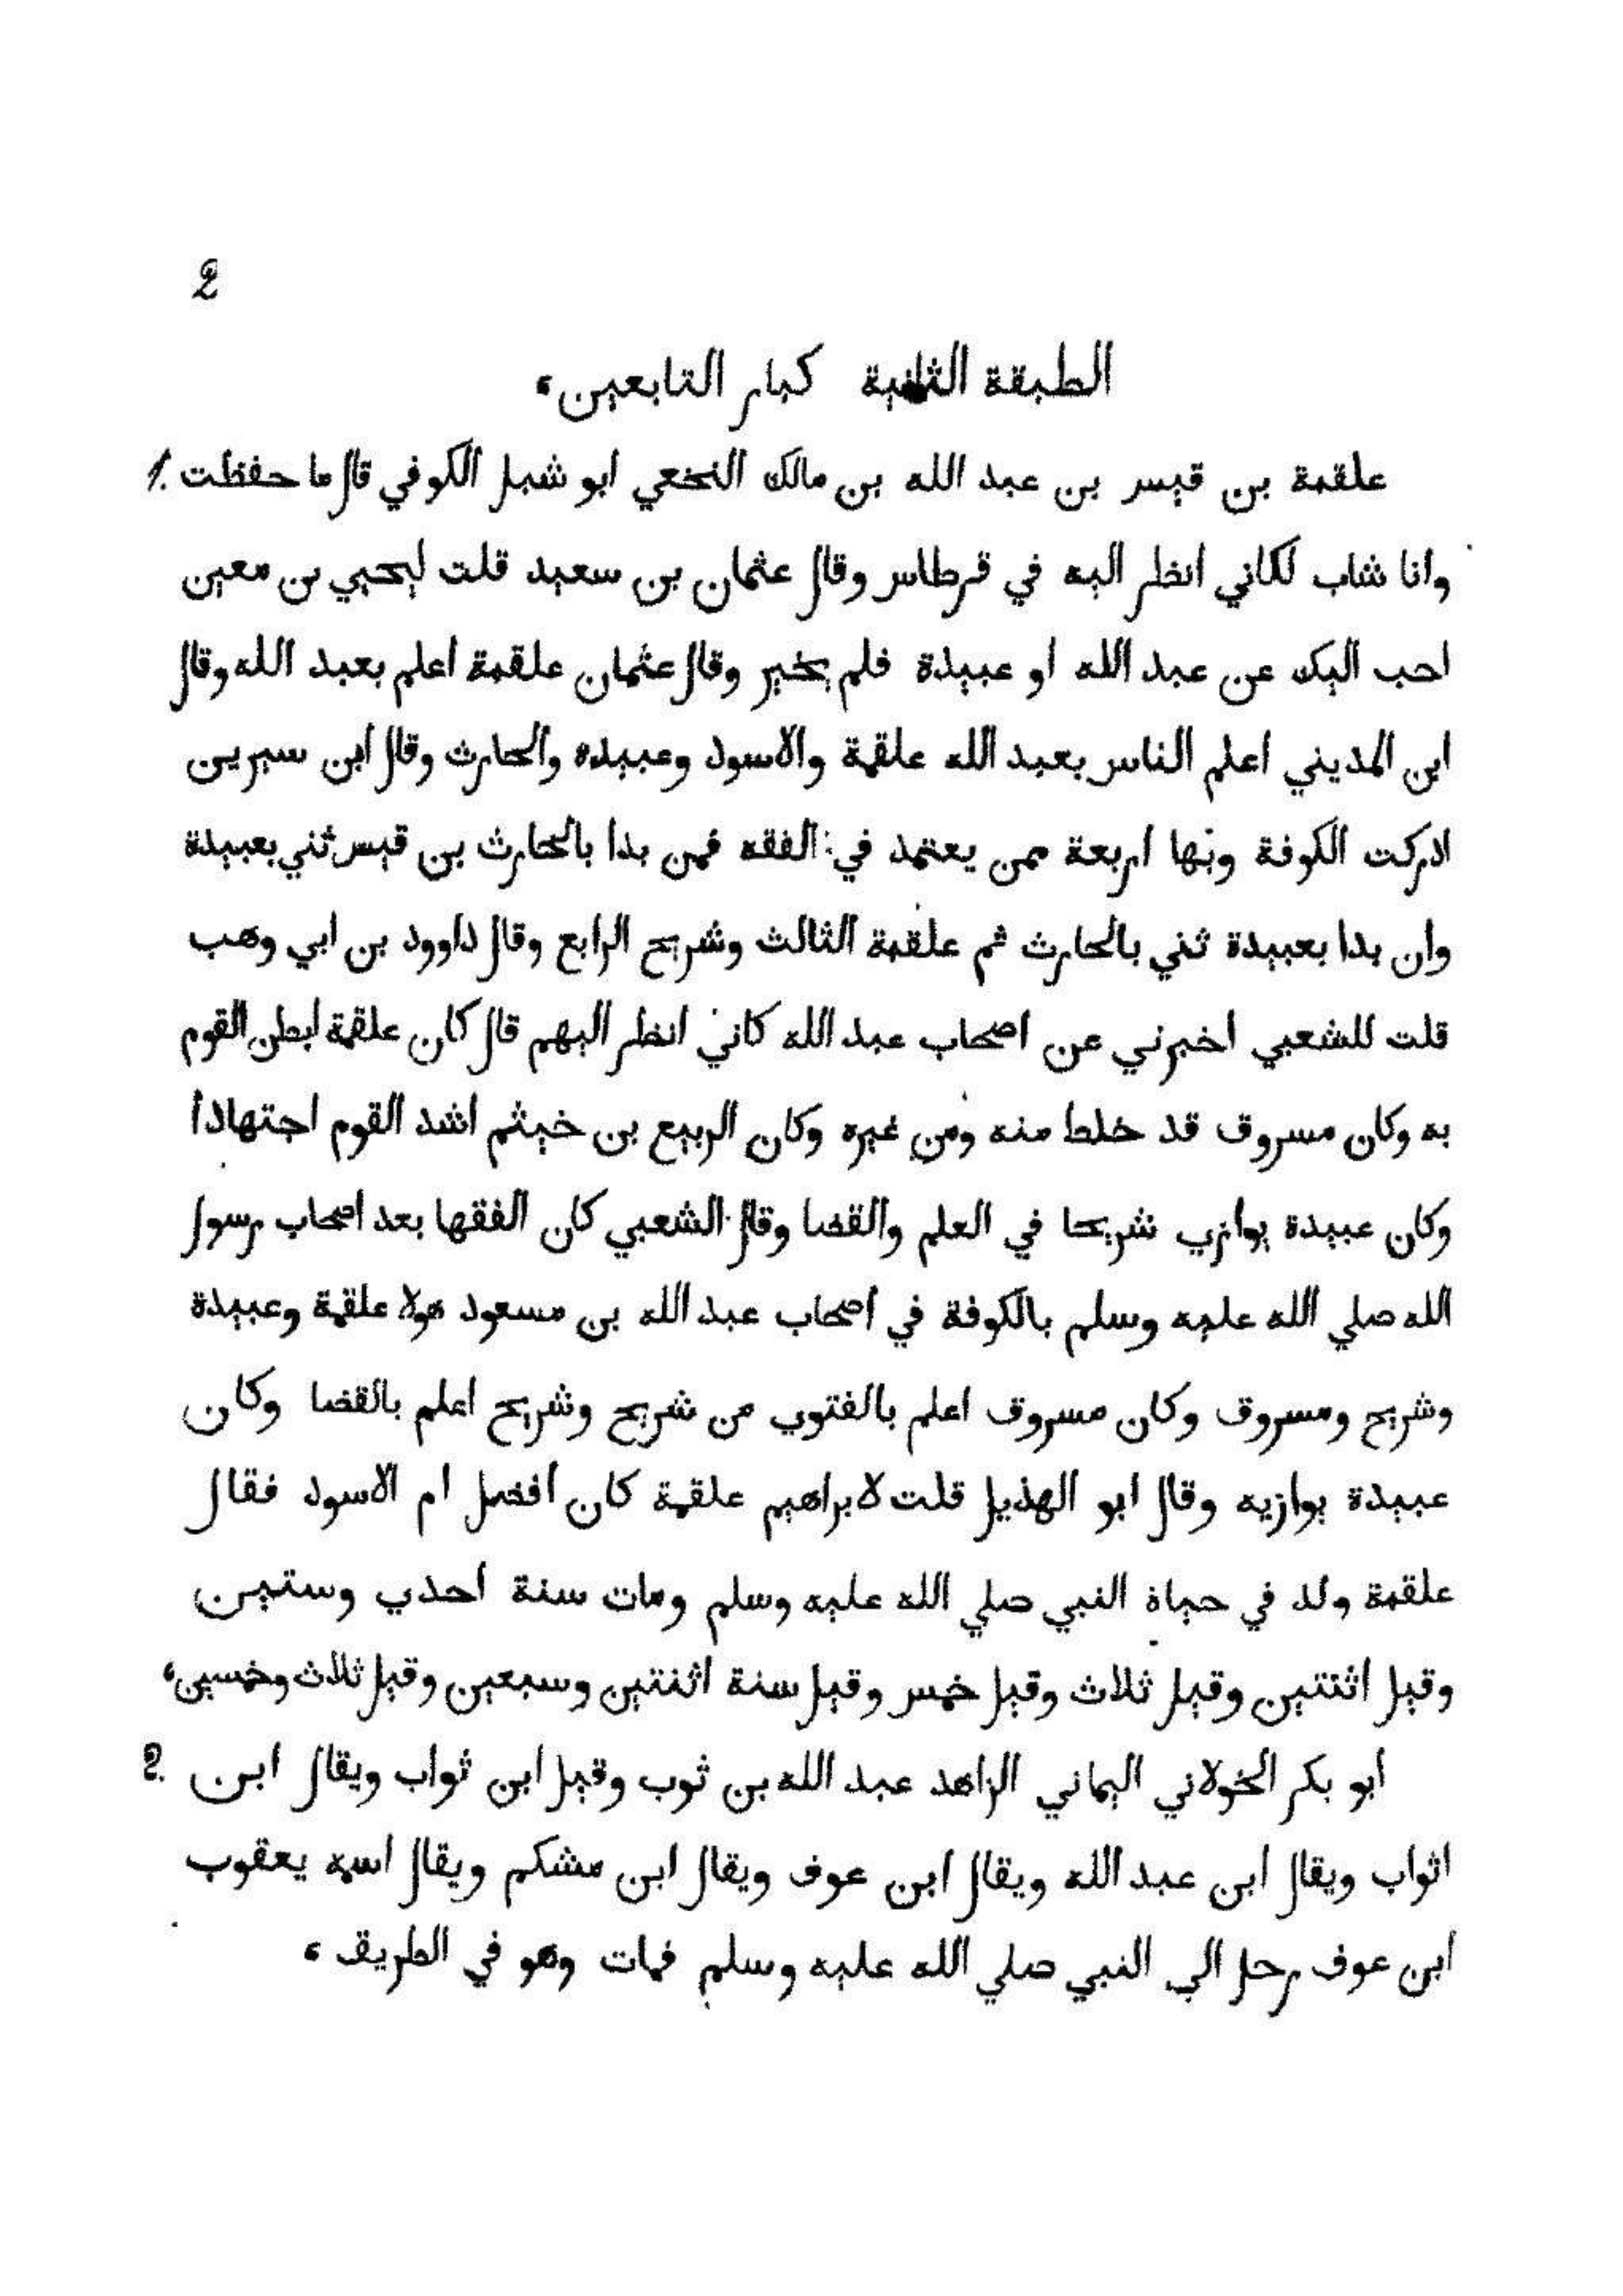 2
الطبقة الثانية كبار التابعين،
علقمة بن قيس بن عبد الله بن مالك النخعي ابو شبل الكوفي قال ما حفظت 1.
وانا شاب لكاني انظر اليه في قرطاس وقال عثمان بن سعيد قلت ليحيي بن معين
احب اليك عن عبد الله او عبيدة فلم يخير وقال عثمان علقمة اعلم بعبد الله وقال
ابن المديني اعلم الناس بعبد الله علقمة والاسود وعبيده والحارث وقال ابن سيرين
ادركت الكوفة وبها اربعة ممن يعتمد في الفقه فمن بدا بالحارث بن قيس ثني بعبيدة
وان بدا بعبيدة ثني بالحارث ثم علقمة الثالث وشريح الرابع وقال داوود بن ابي وهب
قلت للشعبي اخبرني عن اصحاب عبد الله كاني انظر اليهم قال كان علقمة ابطن القوم
به وكان مسروق قد خلط منه ومن غيره وكان الربيع بن خيثم اشد القوم اجتهادا
وكان عبيدة يوازي شريحا في العلم والقضا وقال الشعبي كان الفقها بعد اصحاب رسول
الله صلي الله عليه وسلم بالكوفة في اصحاب عبد الله بن مسعود هولا علقمة وعبيدة
وشريح ومسروق وكان مسروق اعلم بالفتوي من شريح وشريح اعلم بالقضا وكان
عبيدة يوازيه وقال ابو الهذيل قلت لابراهيم علقمة كان افضل ام الاسود فقال
علقمة ولد في حياة النبي صلي الله عليه وسلم ومات سنة احدي وستين
وقيل اثنتين وقيل ثلاث وقيل خمس وقيل سنة اثنتين وسبعين وقيل ثلاث وخمسين،
ابو بكر الخولاني اليماني الزاهد عبد الله بن ثوب وقيل ابن ثواب ويقال ابن 2.
اثواب ويقال ابن عبد الله ويقال ابن عوف ويقال ابن مشكم ويقال اسمه يعقوب
ابن عوف رحل الي النبي صلي الله عليه وسلم فمات وهو في الطريق،